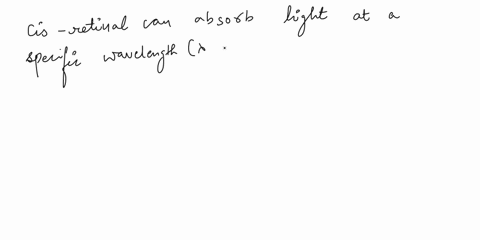 cis-retinal can absorb light at a
specific wavelength (λ.